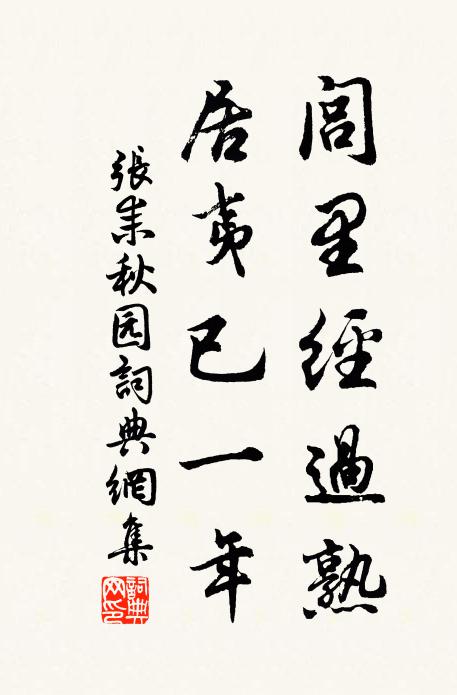 閭里經過熟
居夷已一年
張耒秋园詞典網集
詞典网印